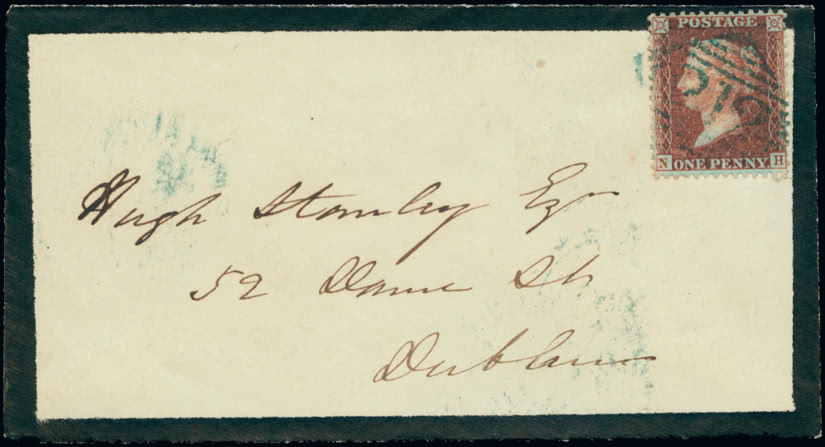 POSTAGE
N ONE PENNY H
Hugh Stanley Esqr
52 Dame St
Dublin